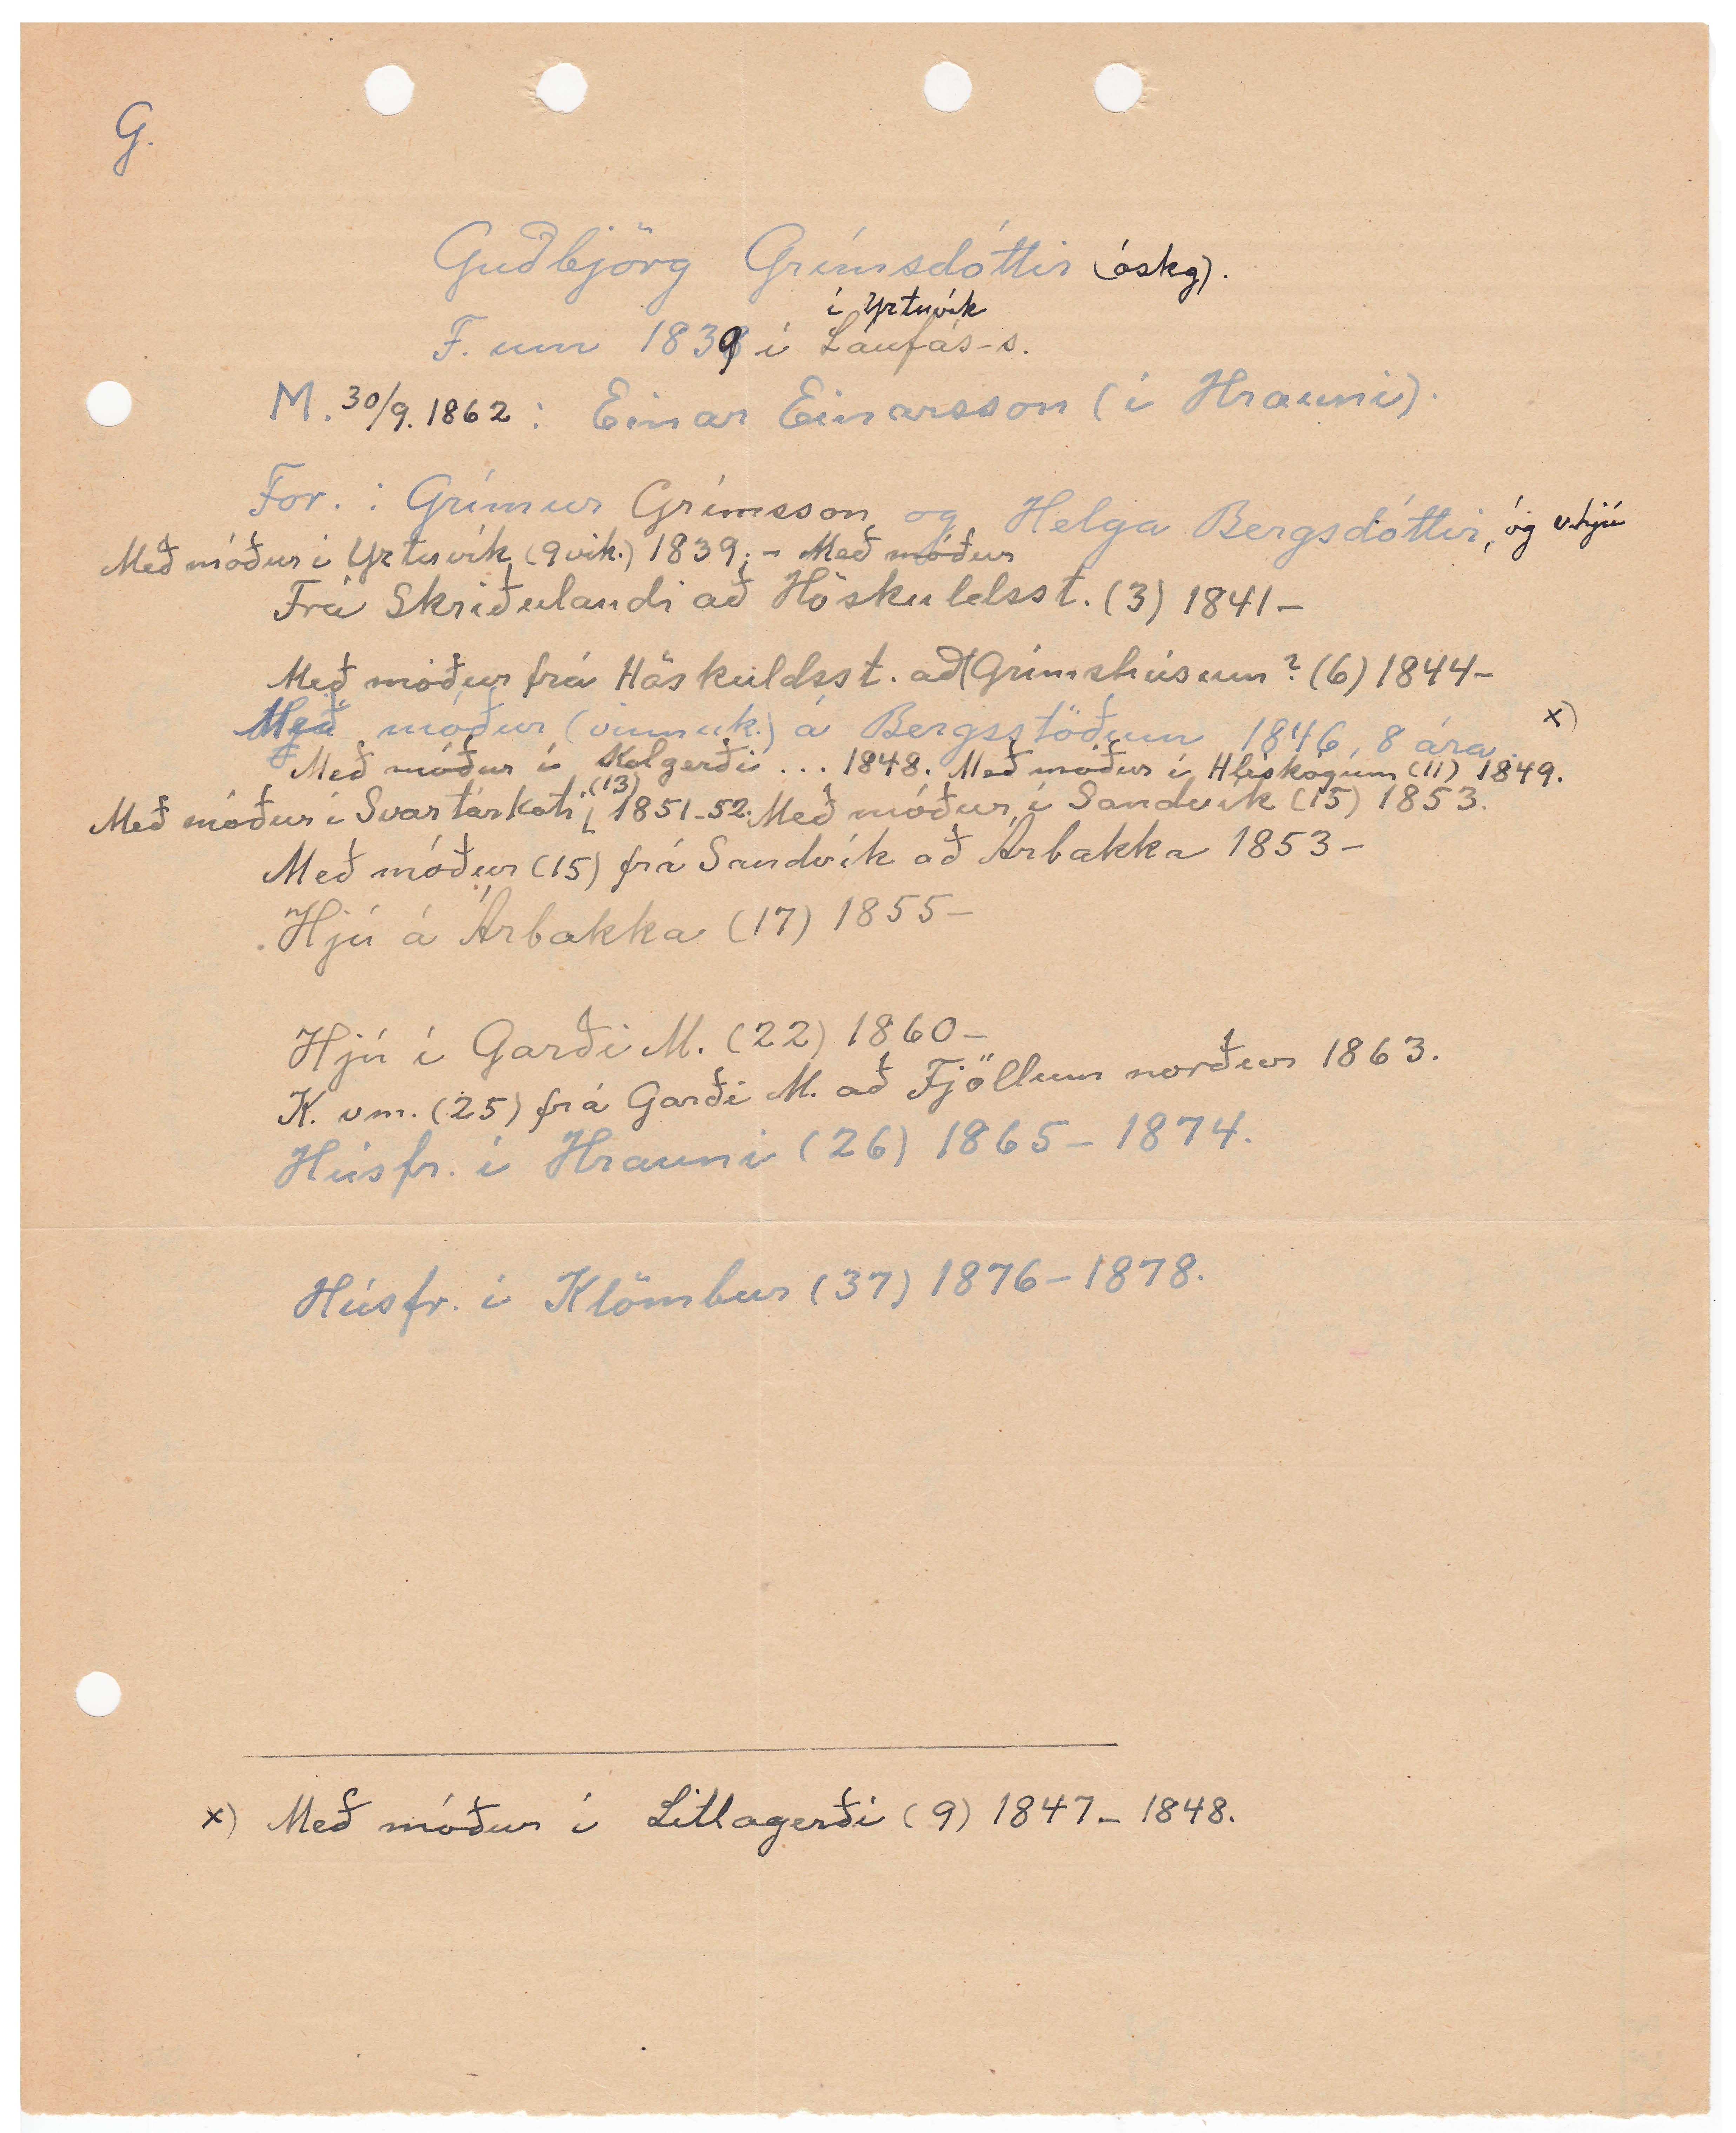 G.
Guðbjörg Grímsdóttir (óskg).
í Yztuvík
F. um 1839 í Laufás-s.
M. 30/9. 1862: Einar Einarsson (í Hrauni).
For.: Grímur Grímsson og Helga Bergsdóttir, óg vhjú
Með móður í Yztuvík (9 vik.) 1839. - Með móður
Frá Skriðulandi að Höskuldsst. (3) 1841-
Með móður frá Höskuldsst. að Grímshúsum? (6) 1844-
Með móður (vinnuk.) á Bergsstöðum 1846, 8 ára. x)
Með móður í Kolgerði ... 1848. Með móður í Hléskógum (11) 1849.
Með móður í Svartárkoti (13) 1851-52. Með móður í Sandvík (15) 1853.
Með móður (15) frá Sandvík að Árbakka 1853-
Hjú á Árbakka (17) 1855-
Hjú í Garði M. (22) 1860-
K. vm. (25) frá Garði M. að Fjöllum norður 1863.
Húsfr. í Hrauni (26) 1865-1874.
Húsfr. í Klömbur (37) 1876-1878.
x) Með móður í Litlagerði (9) 1847-1848.